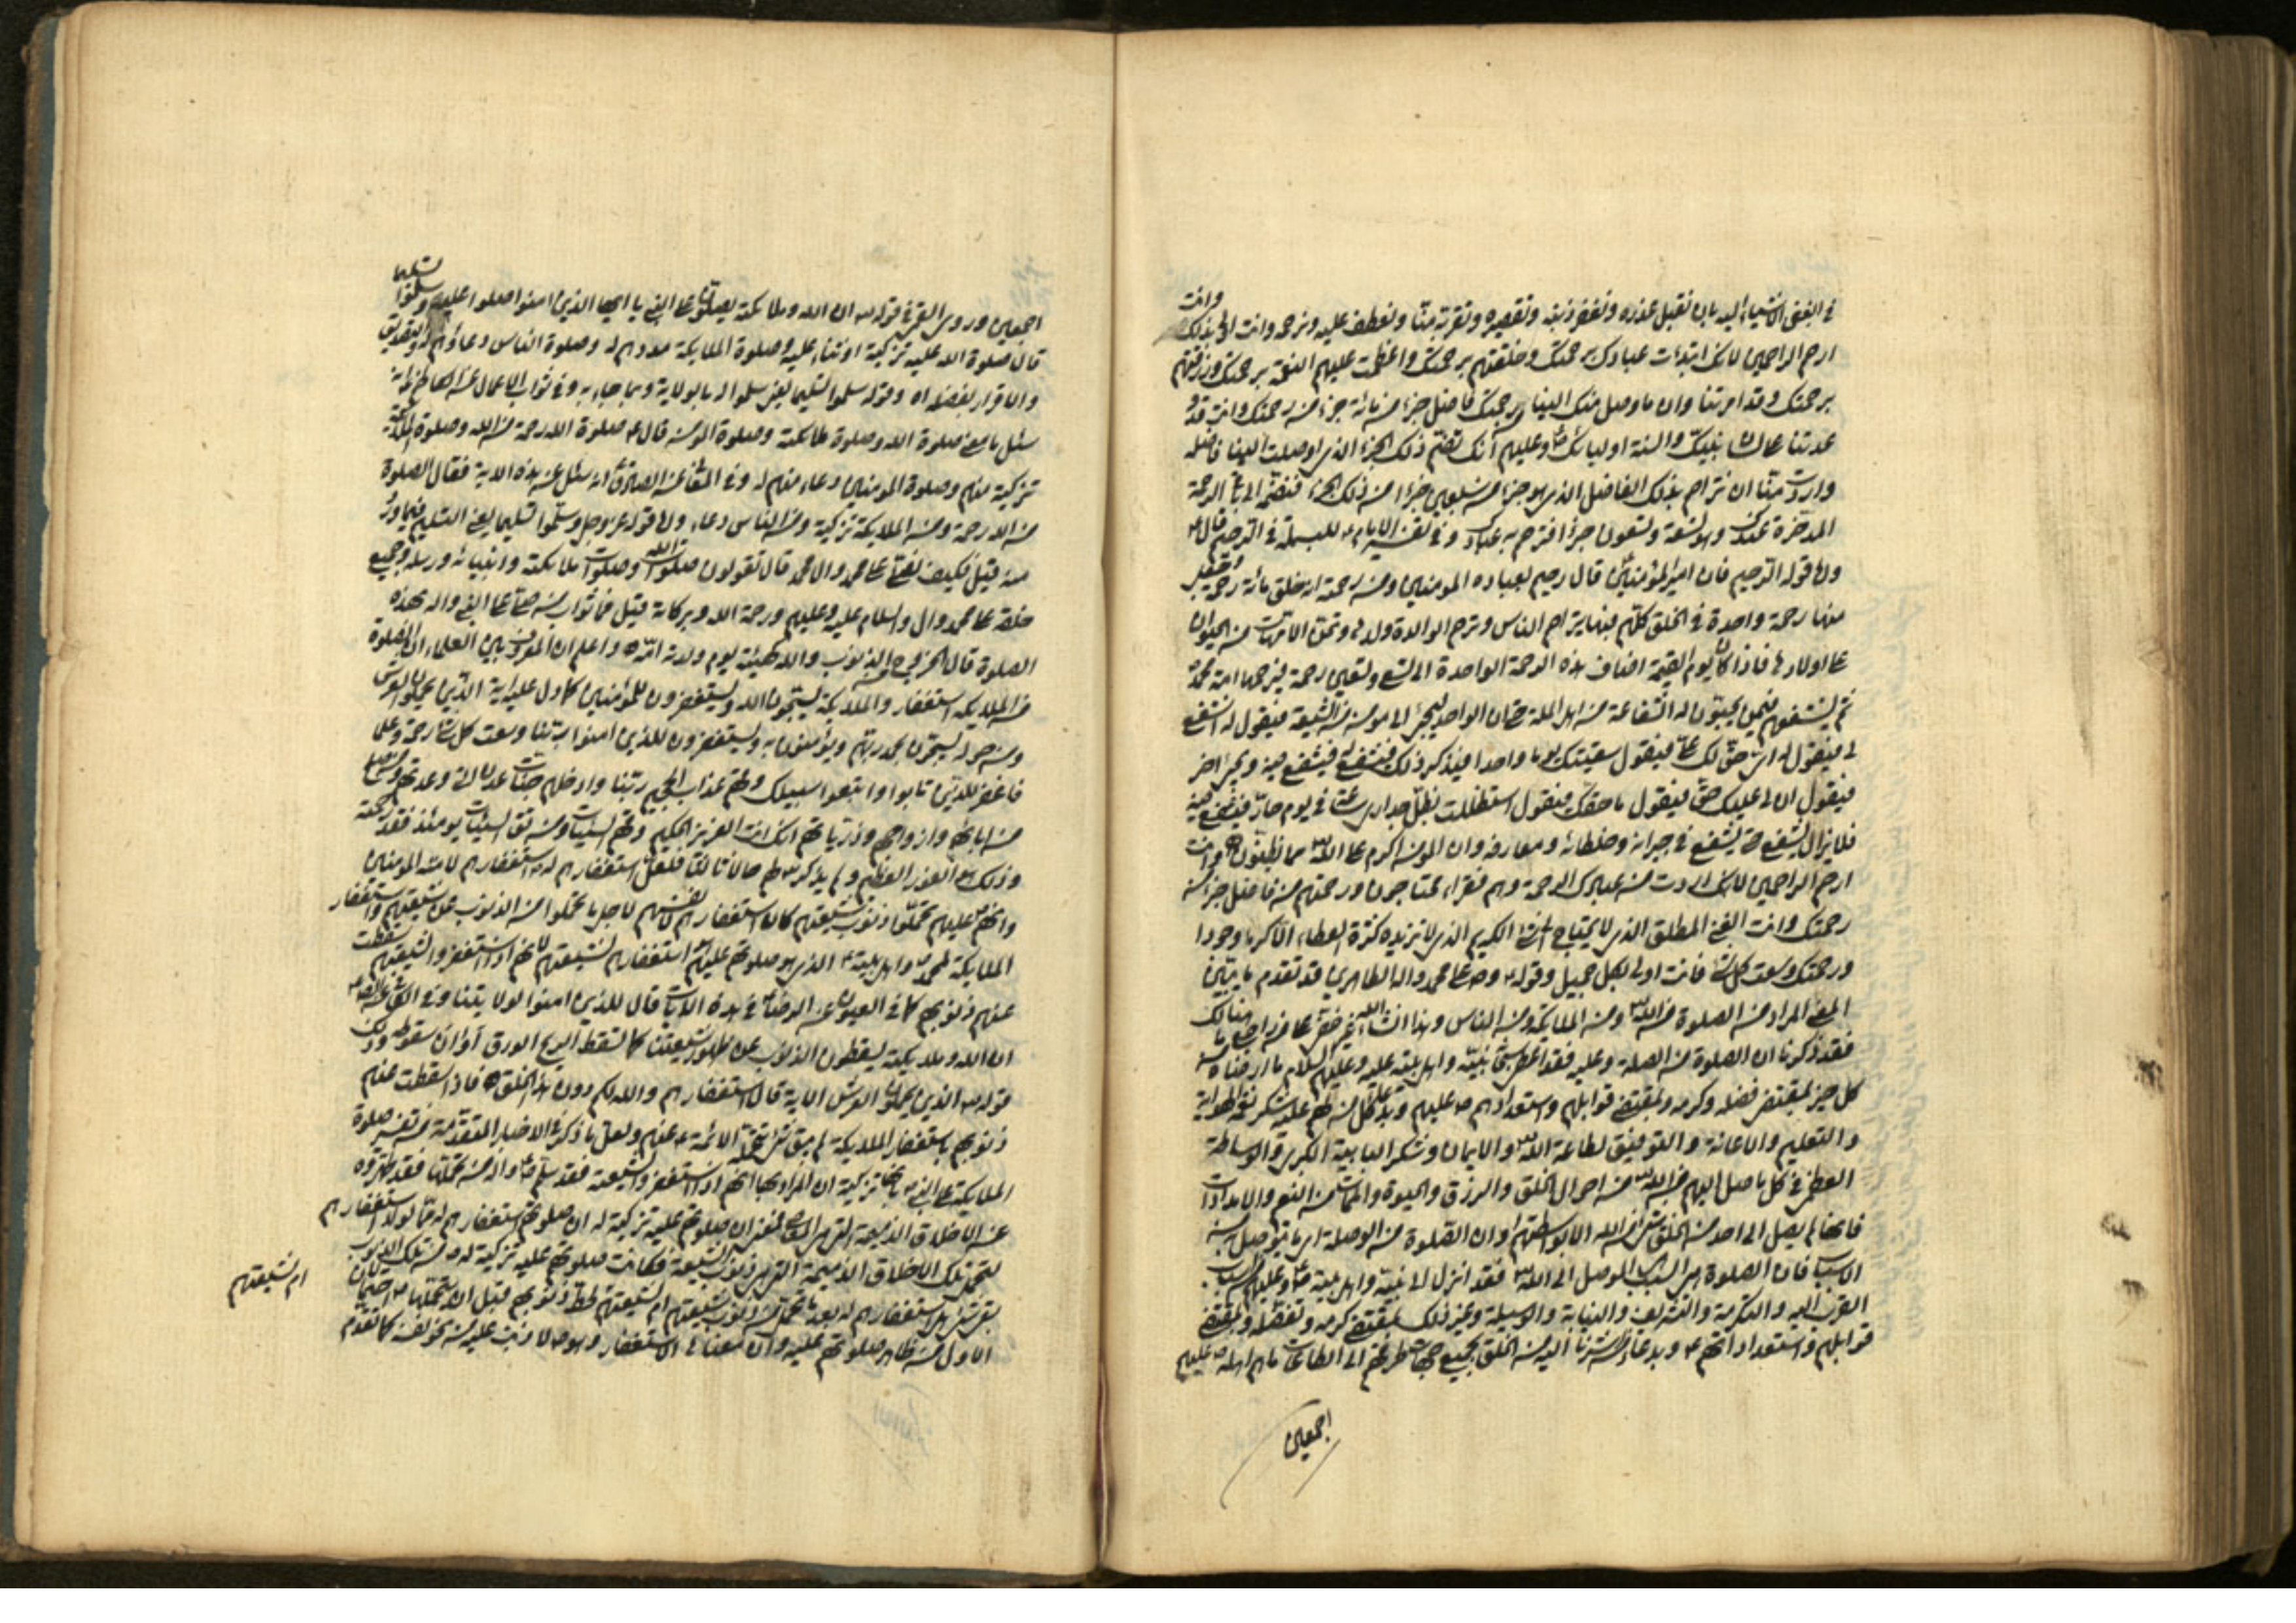 في الغنى الأشياء اليه بان تقبل عذره وتغفر ذنبه وتقصيره وتقربه منا وتعطف عليه وترحمه وانت اولى بذلك وانت
ارحم الراحمين لانك ابتدات عبادك برحمتك وخلقتهم برحمتك واعظمت عليهم النعمة برحمتك ورزقتهم
برحمتك وقد امرتنا وان ما وصل منك الينا برحمتك فاضل جزء من مائة جزء من رحمتك وانت قد
عدتنا على لسان نبيك والسنة اوليائك وعليهم انك تضم ذلك الجزء الذي اوصلت الينا فاضله
واردت منا ان نتراحم بذلك الفاضل الذي هو جزء من سبعين جزءا من ذلك الجزء فتضم الى باقي الرحمة
المدخرة عندك وهو تسعة وتسعون جزءا فترحم به عبادك وفي تفسير الامام ع للبسملة في الرحيم قال ع
واما قوله الرحيم فان امير المؤمنين قال رحيم بعباده المومنين ومن رحمته انه خلق مائة رحمة وجعل
منها رحمة واحدة في الخلق كلهم فبها يتراحم الناس وترحم الوالدة ولدها وتحنن الامهات من الحيوان
على اولادها فاذا كان يوم القيمة اضاف هذه الرحمة الواحدة الى تسع وتسعين رحمة فيرحم بها امة محمد
ثم يشفعهم فيمن يحبون له الشفاعة من اهل الملة حتى ان الواحد ليجئ الى مومن من الشيعة فيقول له اشفع
لي فيقول له اي حق لك علي فيقول سقيتك يوما واحدا فيذكر ذلك فيشفع له فيشفع فيه ويجئ اخر
فيقول ان لي عليك حق فيقول ما حقك فيقول استظللت بظل جداري ساعة في يوم حار فيشفع فيه
فلا يزال يشفع حتى يشفع في جيرانه وخلطائه ومعارفه وان المومن اكرم على الله مما تظنون وانت
ارحم الراحمين لانك اردت من عبيدك الرحمة وهم فقراء محتاجون ورحمتهم من فاضل جزء من
رحمتك وانت الغني المطلق الذي لا يحتاج الى شئ الكريم الذي لا تزيده كثرة العطاء الا كرما وجودا
ورحمتك وسعت كل شئ فانت اولى بكل جميل وقوله وصلى على محمد واله الطاهرين قد تقدم ما يبين
المعنى المراد من الصلوة من الله ومن الملائكة ومن الناس وهذا ان شاء الله غير خفي على من راجع هنالك
فقد ذكرنا ان الصلوة من الصلة وعليه فقد اعطى سبحانه نبيه واهل بيته عليه وعليهم السلام ما ارضاه من
كل خير بمقتضى فضله وكرمه وبمقتضى قوابلهم واستعدادهم ص عليهم وبدعاء كل من لهم عليه شكر نعمة الهداية
والتعليم والاعانة والتوفيق لطاعة الله والايمان وشكر البابية الكبرى والوساطة
العظمى في كل ما صل اليهم من الله من احوال الخلق والرزق والحيوة والممات من النعم والامدادات
فانها لم يصل الى احد من الخلق شئ من الله الا بواسطتهم وان الصلوة من الوصلة اي ما يتوصل به من
الاسباب فان الصلوة هي السبب الموصل الى الله فقد انزل الى نبيه واهل بيته ص وعليهم اسباب
القرب اليه والتكرمة والتشريف والنيابة والوسيلة وغير ذلك بمقتضى كرمه وتفضله وبمقتضى
قوابلهم واستعداداتهم ع وبدعاء من اشرنا اليه من الخلق بجميع جهات طرقهم الى الطاعات ما هم اهله ص عليهم
اجمعين
اجمعين وروى القمي في قوله ان الله وملائكته يصلون على النبي يا ايها الذين امنوا صلوا عليه وسلموا تسليما
قال صلوة الله عليه تزكية له وثناء عليه وصلوة الملائكة مدحهم له وصلوة الناس دعاؤهم له والتصديق
والاقرار بفضله وقوله سلموا تسليما يعني سلموا له بالولاية وبما جاء به وفي ثواب الاعمال عن الكاظم انه
سئل ما معنى صلوة الله وصلوة ملائكته وصلوة المومن قال ع صلوة الله رحمة من الله وصلوة الملائكة
تزكية منهم وصلوة المومنين دعاء منهم له وفي المعاني عن الصادق انه سئل عن هذه الاية فقال الصلوة
من الله رحمة ومن الملايكة تزكية ومن الناس دعاء واما قوله عز وجل وسلموا تسليما يعني التسليم فيما ورد
عنه قيل فكيف نصلي على محمد وال محمد قال تقولون صلوات الله وصلوات ملائكته وانبيائه ورسله وجميع
خلقه على محمد وال والسلام عليه وعليهم ورحمة الله وبركاته قيل فما ثواب من صلى على النبي واله بهذه
الصلوة قال الخروج من الذنوب والله كهيئته يوم ولدته امه واعلم ان المعروف بين العلماء ان الصلوة
من الملايكة استغفار والملايكة يسبحون الله ويستغفرون للمؤمنين كما دل عليه اية الذين يحملون العرش
ومن حوله يسبحون بحمد ربهم ويؤمنون به ويستغفرون للذين امنوا ربنا وسعت كل شئ رحمة وعلما
فاغفر للذين تابوا واتبعوا سبيلك وقهم عذاب الجحيم ربنا وادخلهم جنات عدن التي وعدتهم ومن صلح
من ابائهم وازواجهم وذرياتهم انك انت العزيز الحكيم وقهم السيئات ومن تق السيئات يومئذ فقد رحمته
وذلك هو الفوز العظيم ولم يذكر لهم حالا ثالثا فلعل استغفارهم له استغفارهم لامته المومنين
وانهم عليهم تحملوا ذنوب شيعتهم كان استغفارهم لانفسهم لاجل ما تحملوا من الذنوب عن شيعتهم واستغفار
الملايكة لمحمد واهل بيته ع الذي هو صلوتهم عليهم استغفارهم لشيعتهم لانهم اذا استغفروا لشيعتهم سقطت
عنهم ذنوبهم كما في العيون عن الرضا في هذه الايات قال للذين امنوا بولايتنا وفي الكافي عن الصادق
ان الله وملايكته يسقطون الذنوب عن ظهور شيعتنا كما تسقط الريح الورق اوان سقوطه وذلك
قوله الذين يحملون العرش الاية قال استغفارهم والله لكم دون هذا الخلق فاذا سقطت عنهم
ذنوبهم باستغفار الملايكة لم يبق شئ تتحمله الائمة ع عنهم ولعل ما ذكر في الاخبار المتقدمة من تفسير صلوة
الملايكة على النبي بانها تزكية ان المراد بها انهم اذا استغفروا لشيعته فقد سلم واله من تحملنا فقد طهروه
عن الاخلاق الذميمة التي هي المعاصي فمعنى ان صلوتهم عليه تزكية له ان صلوتهم استغفارهم له مما لولا استغفارهم
لتحمل تلك الاخلاق الذميمة التي هي ذنوب الشيعة فكانت صلوتهم عليه تزكية له من تلك الذنوب
بقي شئ هل استغفارهم له بعد ما تحمل من ذنوب شيعتهم ام لشيعتهم لحط ذنوبهم قبل ان يتحملها احتمالان
ام لشيعتهم
الاول من ظاهر صلوتهم عليه وان معناها الاستغفار وهو